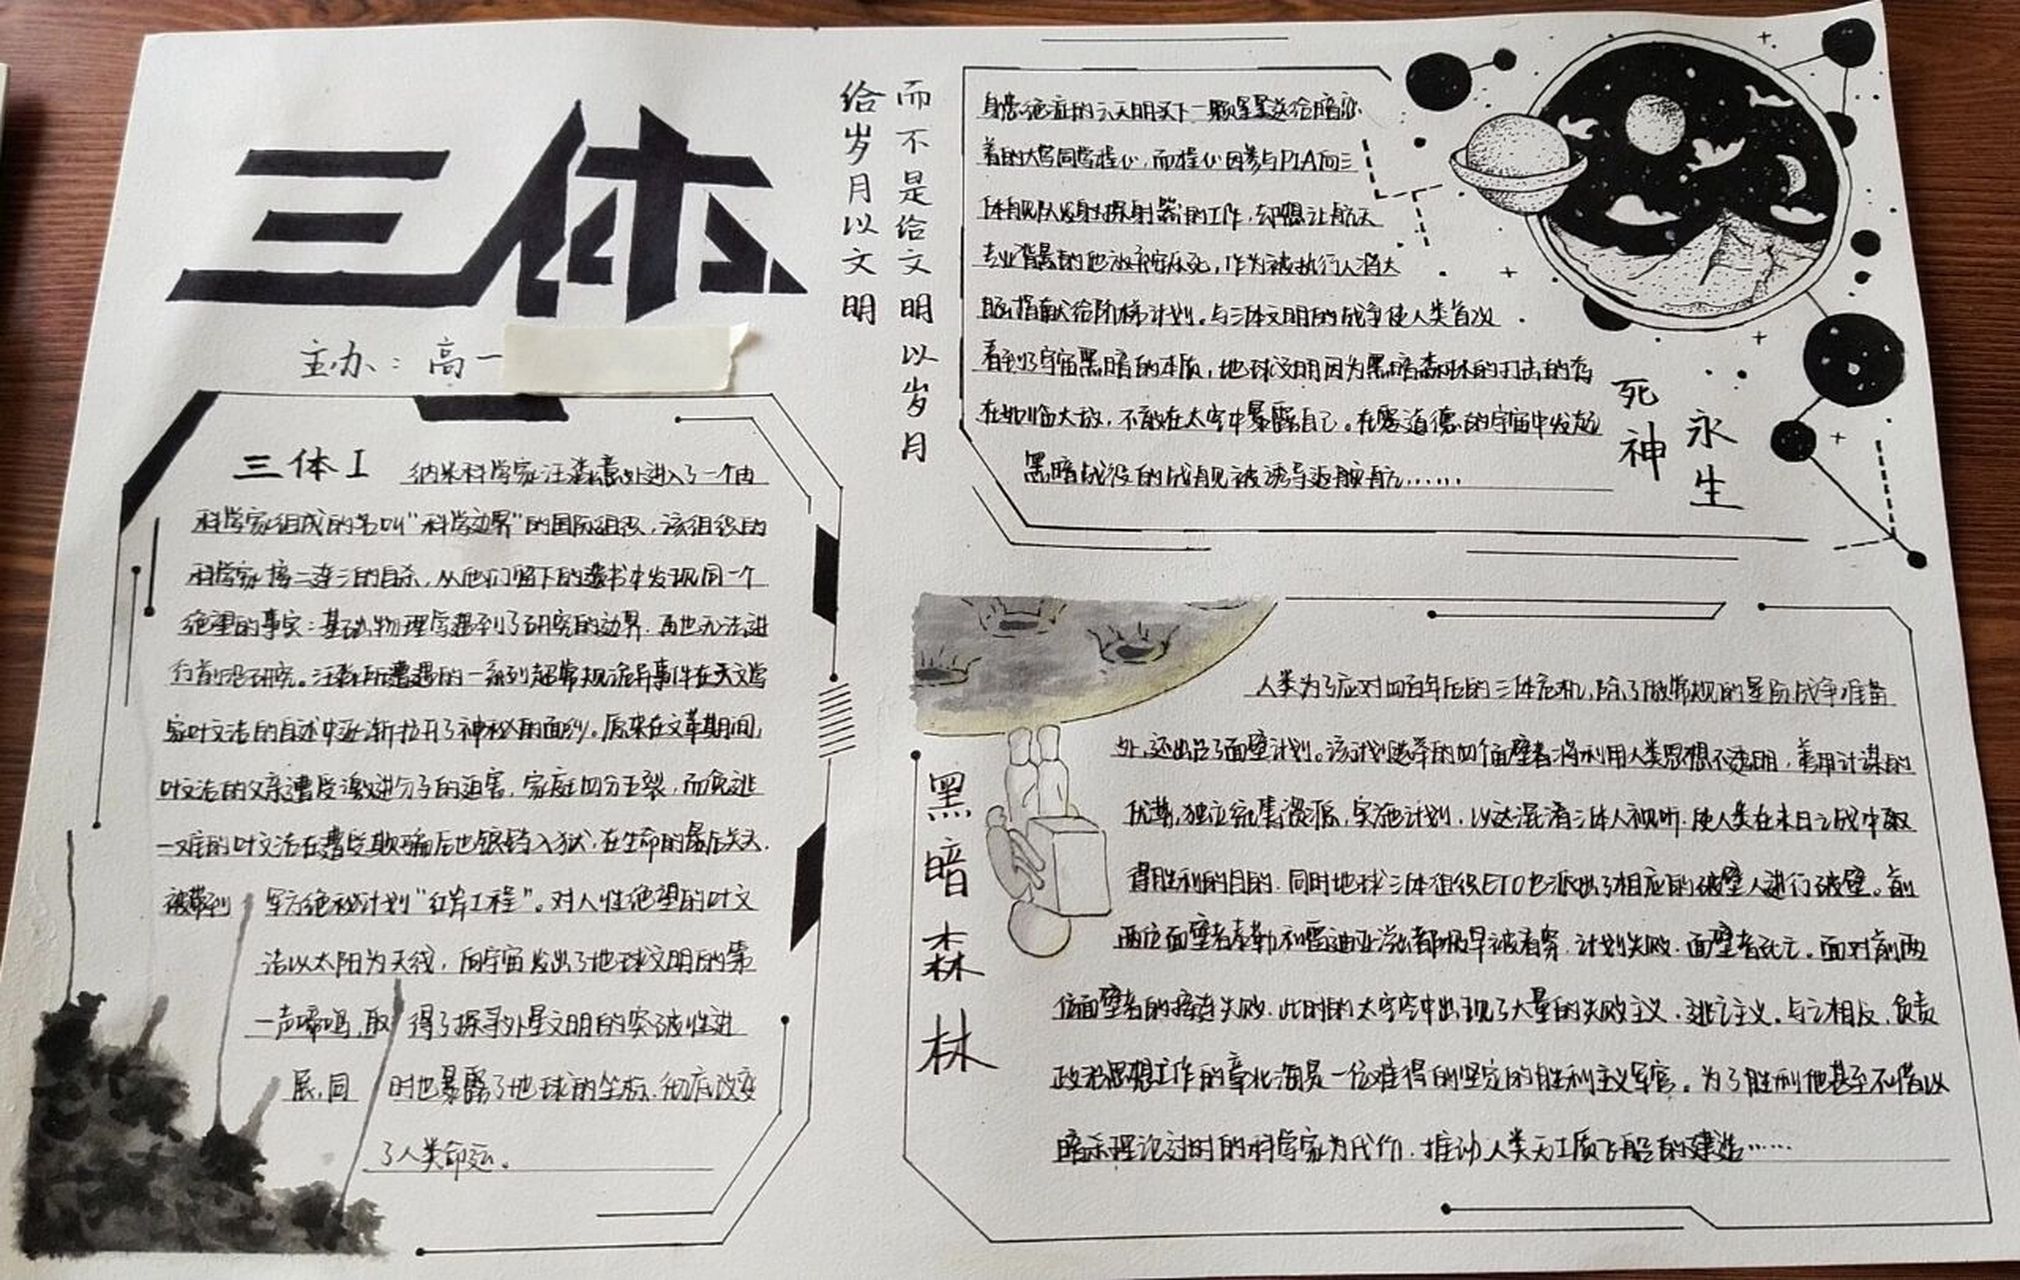 三体
主办：高一
给岁月以文明
而不是给文明以岁月
三体I 纳米科学家汪淼意外进入了一个由
科学家组成的名叫“科学边界”的国际组织，该组织的
科学家接二连三的自杀，从他们留下的遗书中发现同一个
绝望的事实：基础物理学遇到了研究的边界，再也无法进
行前沿研究。汪淼所遭遇的一系列超常规诡异事件在天文学
家叶文洁的自述中逐渐拉开了神秘的面纱。原来在文革期间，
叶文洁的父亲遭受激进分子的迫害，家庭四分五裂，而侥逃
一难的叶文洁在遭受欺骗后也锒铛入狱，在生命的最后关头，
被带到军方绝秘计划“红岸工程”。对人性绝望的叶文
洁以太阳为天线，向宇宙发出了地球文明的第
一声啼鸣，取得了探寻外星文明的突破性进
展，同时也暴露了地球的坐标，彻底改变
了人类命运。
身患绝症的云天明买下一颗星星送给暗恋
着的大学同学程心，而程心因参与PIA向三
体舰队发射探射器的工作，却想让航天
专业背景的他放弃安乐死，作为被执行人将大
脑捐献给阶梯计划。与三体文明的战争使人类首次
看到了宇宙黑暗的本质，地球文明因为黑暗森林的打击的存
在如临大敌，不敢在太空中暴露自己。在零道德的宇宙中发起
黑暗战役的战舰被诱导返航……
死神
永生
黑暗森林
人类为了应对四百年后的三体危机，除了做常规的星际战争准备
外，还出台了面壁计划。该计划选择的四个面壁者将利用人类思想不透明，善用计谋的
优势，独立统集资源，实施计划，以达混淆三体人视听，使人类在末日之战中取
得胜利的目的，同时地球三体组织ETO也派出了相应的破壁人进行破壁。前
两位面壁者泰勒和雷迪亚兹都极早被看穿，计划失败，面壁者死亡。面对前两
位面壁者的接连失败，此时的太空军中出现了大量的失败主义、逃亡主义。与之相反，负责
政治思想工作的章北海是一位难得的坚定的胜利主义军官。为了胜利他甚至不惜以
暗杀理论过时的科学家为代价，推动人类无工质飞船的建造……